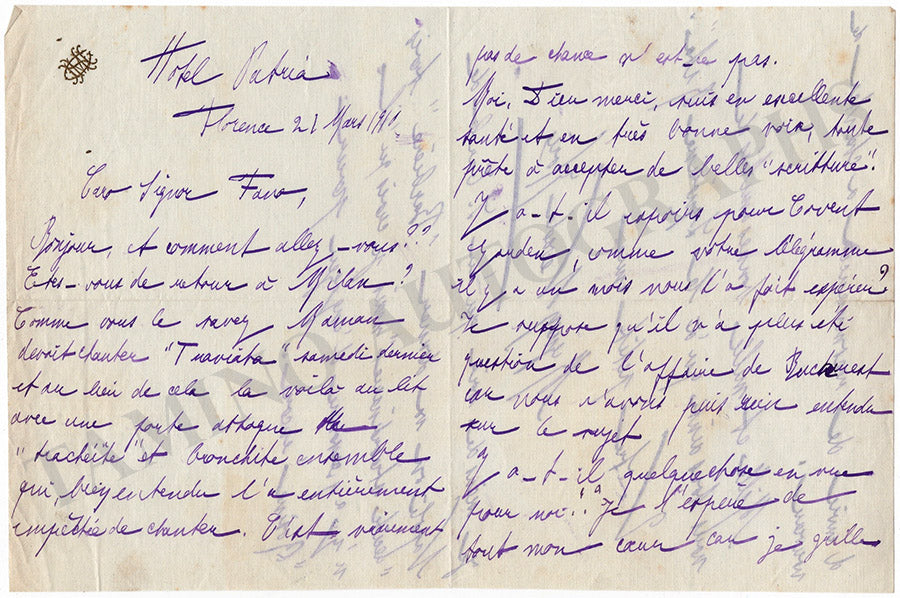 Hotel Patria
Florence 21 Mars 191
Caro Signor Fano,
Bonjour, et comment allez-vous??
Etes-vous de retour à Milan?
Comme vous le savez Maman
devait chanter "Traviata" samedi dernier
et au lieu de cela la voilà au lit
avec une forte attaque de
"trachéite" et bronchite ensemble
qui, bien entendu l'a entièrement
empêchée de chanter. C'est vraiment
pas de chance n'est ce pas.
Moi, Dieu merci, suis en excellente
santé et en très bonne voix, toute
prête à accepter de belles "scritture".
Y a-t-il espoirs pour Covent
Garden, comme votre télégramme
il y a un mois nous l'a fait espérer?
Je suppose qu'il n'a plus été
question de l'affaire de Bucharest
car nous n'avons puis rien entendu
sur le sujet
Y a-t-il quelquechose en vue
pour moi?? Je l'espère de
tout mon cœur car je grille
TAMINO AUTOGRAPHS